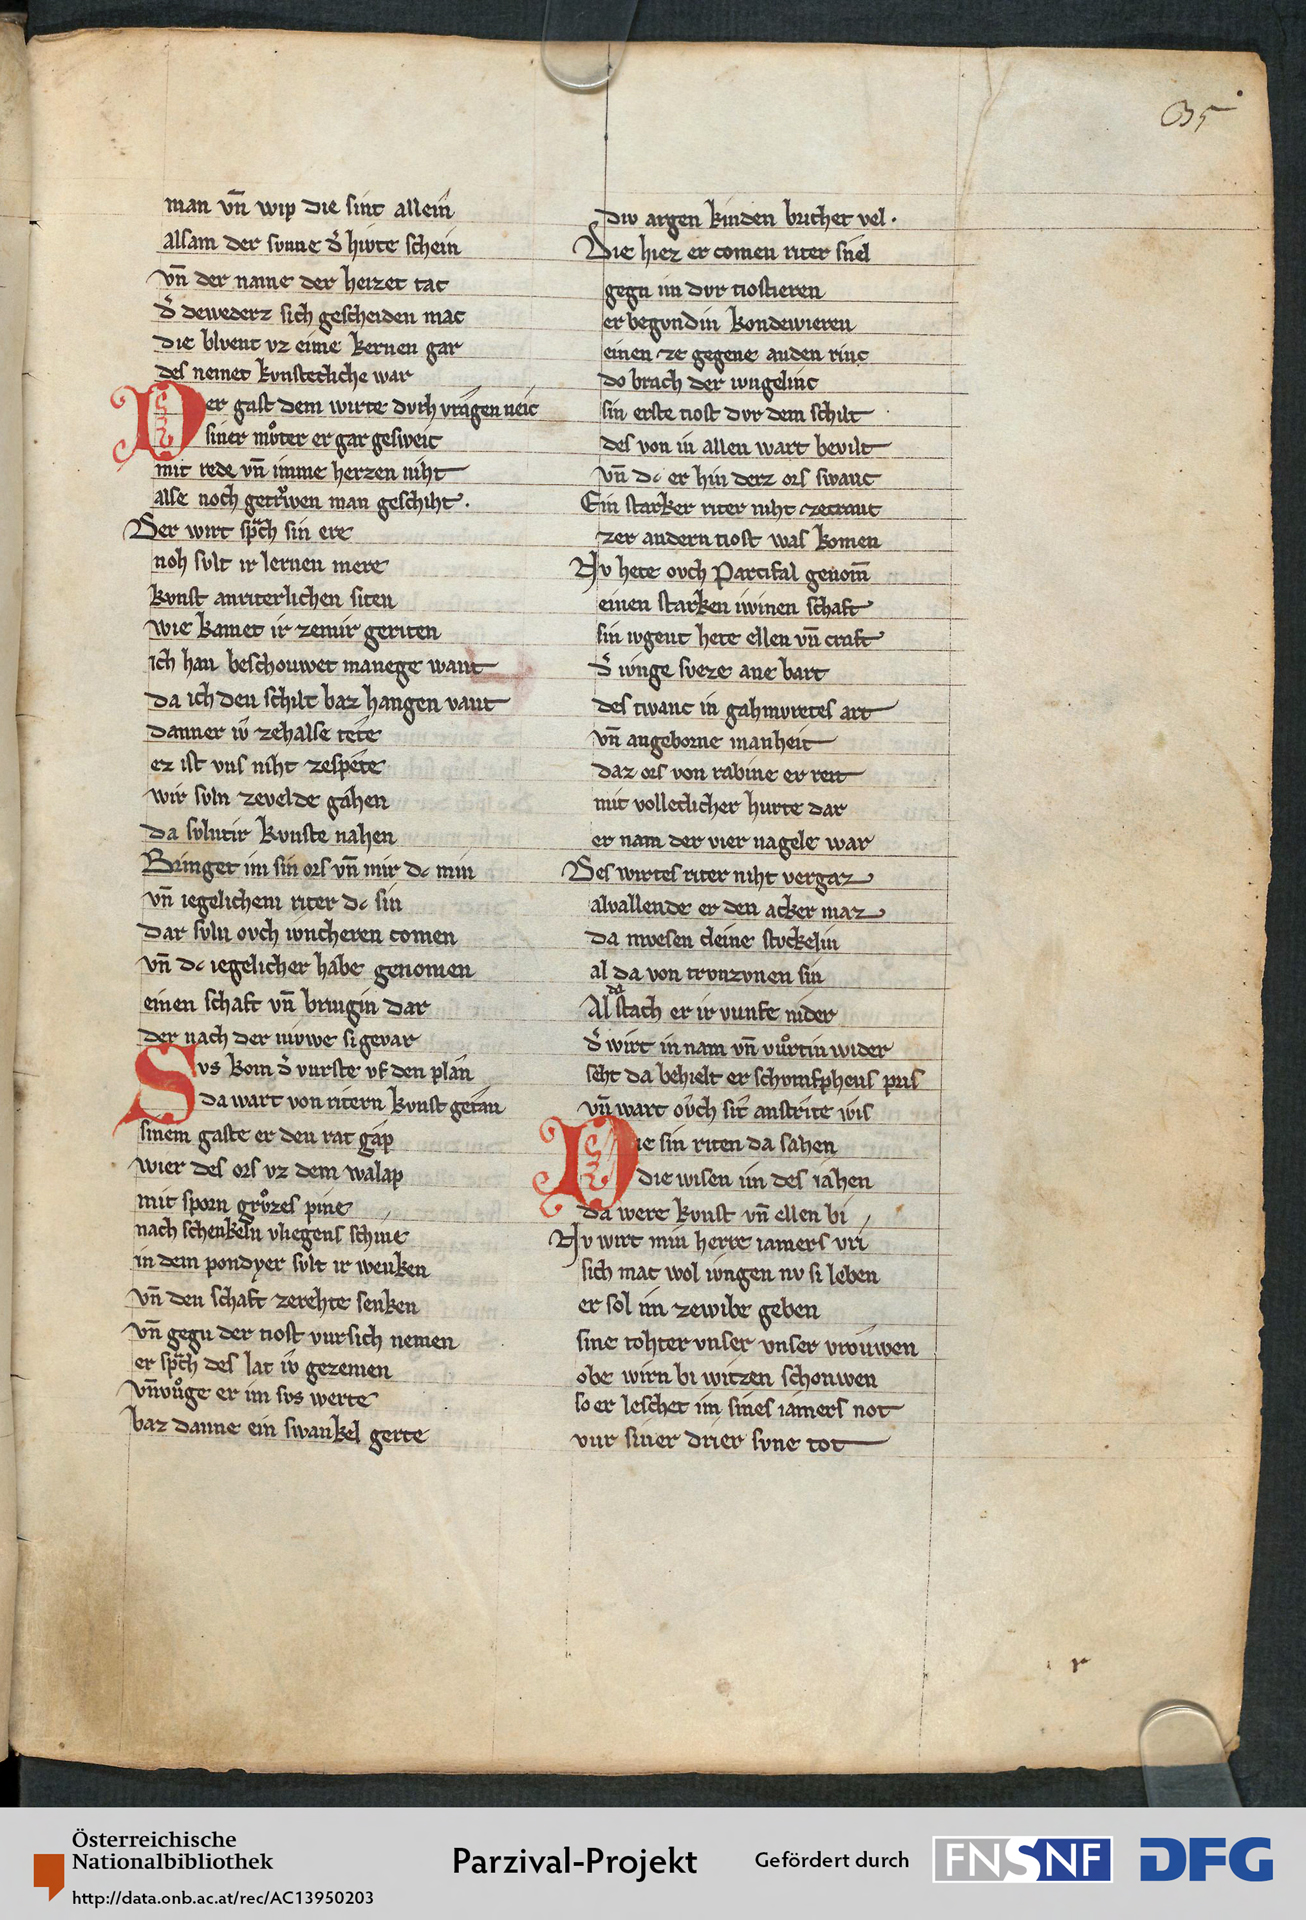 35
man vn̄ wip die sint allein
alsam der svnne d̕ hivte schein
vn̄ der name der heizet tac
d̕ dewederz sich gescheiden mac
die blvent vz eime kernen gar
des nemet kvnstecliche war
Der gast dem wirte dvrh vragen neic
siner mvͦter er gar gesweic
mit rede vn̄ imme herzen niht
alse noch getrͥwen man geschiht ·
Der wirt spͣch sin ere
noh svlt ir lernen mere
kvnst anriterlichen siten
wie kamet ir zemir geriten
ich han beschouwet manege want
da ich den schilt baz hangen vant
danner iv̂ zehalse tete
ez ist vns niht zespete
wir svln zevelde gahen
da svlutir kvnste nahen
Bringet im sin ors vn̄ mir dc min
vn̄ iegelichem riter dc sin
dar svln ovch ivncheren comen
vn̄ dc iegelicher habe genomen
einen schaft vn̄ bringin dar
der nach der nivwe si gevar
Svs kom d̕ vurste vf den plan
da wart von ritern kvnst getan
sinem gaste er den rat gap
wier des ors vz dem walap
mit sporn grvͦzes pine
nach schenkeln vliegens schine
in dem pondyer svlt ir wenken
vn̄ den schaft zerehte senken
vn̄ gegn der tiost vursich nemen
er spͣch des lat iv̂ gezemen
vn̄vuͦge er im svs werte
baz danne ein swankel gerte
div argen kinden brichet vel ·
Die hiez er comen riter snel
gegn im dvr tiostieren
er begvndin kondewieren
einen ze gegene anden rinc
do brach der ivngelinc
sin erste tiost dvr dem schilt
des von in allen wart bevilt
vn̄ dc er hin derz ors swanc
Ein starker riter niht zecranc
zer andern tiost was komen
Nv hete ovch Parcifal genom̄
einen starken iwinen schaft
sin ivgent hete ellen vn̄ craft
d̕ ivnge sveze ane bart
des twanc in gahmvretes art
vn̄ angeborne manheit
daz ors von rabine er reit
mit volleclicher hurte dar
er nam der vier nagele war
Des wirtes riter niht vergaz
alvallende er den acker maz
da mvesen cleine stvckelin
al da von trvnzvnen sin
da
Al stach er ir vunfe nider
d̕ wirt in nam vn̄ vuͦrtin wider
seht da behielt er schvmfpheus pris
vn̄ wart ovch sit anstrite wis
Die sin riten da sahen
die wisen im des iahen
da were kvnst vn̄ ellen bi
Nv wirt min herre iamers vri
sich mac wol ivngen nv si leben
er sol im zewibe geben
sine tohter vnser vnser vrouwen
obe wirn bi witzen schouwen
so er leschet im sines iamers not
vur siner drier svne tot
r
Österreichische
Nationalbibliothek
http://data.onb.ac.at/rec/AC13950203
Parzival-Projekt
Gefördert durch
FNSNF
DFG